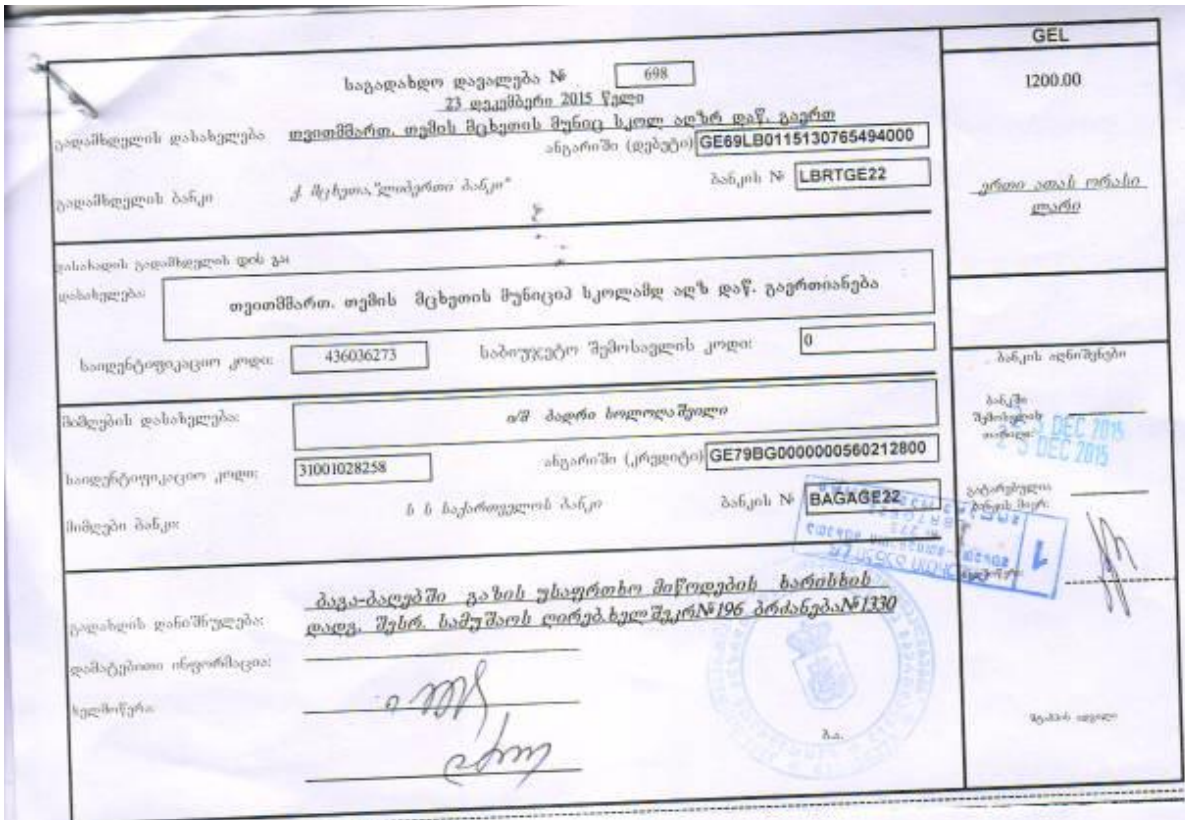 GEL
საგადახდო დავალება № 698
1200.00
23 დეკემბერი 2015 წელი
გადამხდელის დასახელება თვითმმართ. თემის მცხეთის მუნიც სკოლ აღზრ დაწ. გაერთ
ანგარიში (დებეტი) GE69LB0115130765494000
გადამხდელის ბანკი ქ მცხეთა,"ლიბერთი ბანკი" ბანკის № LBRTGE22
ერთი ათას ორასი
ლარი
გადამხდელის დის გა
დასახელება: თვითმმართ. თემის მცხეთის მუნიციპ სკოლამდ აღზ დაწ. გაერთიანება
საიდენტიფიკაციო კოდი: 436036273 საბიუჯეტო შემოსავლის კოდი: 0
ბანკის აღნიშვნები
მიმღების დასახელება: ი/მ ბადრი სოლოღაშვილი
ბანკში
შემოსვლის
თარიღი:
DEC 2015
DEC 2015
საიდენტიფიკაციო კოდი: 31001028258 ანგარიში (კრედიტი) GE79BG0000000560212800
მიმღები ბანკი: ს ს საქართველოს ბანკი ბანკის № BAGAGE22
გატარებულია
ბანკის მიერ:
1
გადახდის დანიშნულება: ბაგა-ბაღებში გაზის უსაფრთხო მიწოდების ხარისხის
დადგ, შესრ. სამუშაოს ღირებ.ხელშეკრ№196 ბრძანება№1330
დამატებითი ინფორმაცია:
ხელმოწერა
ბ.ა.